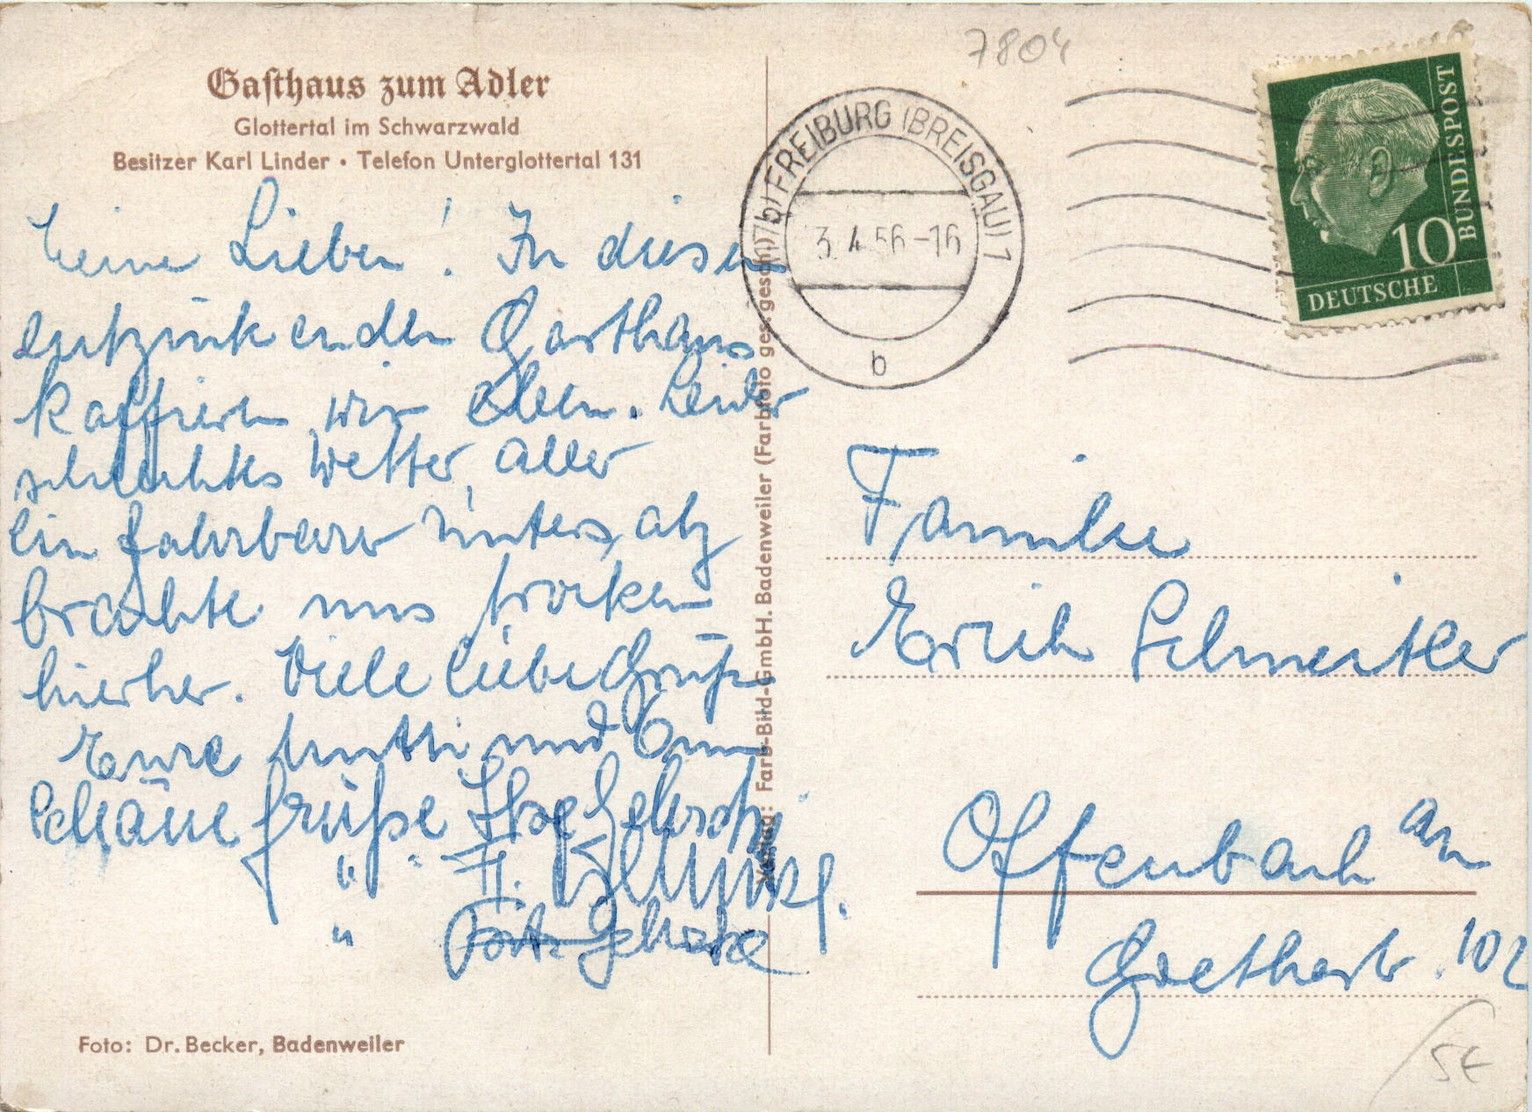 Gasthaus zum Adler
Glottertal im Schwarzwald
Besitzer Karl Linder • Telefon Unterglottertal 131
Meine Lieben! In diesem
entzückenden Gasthaus
kaffieren wir eben. Leider
schlechtes Wetter, aber
ein fahrbarer Untersatz
brachte uns trocken
hierher. Viele liebe Grüße
Eure Mutti und
Schöne Grüße
" F.
"
Foto: Dr. Becker, Badenweiler
Verlag: Farb-Bild-GmbH. Badenweiler (Farbfoto ges. gesch.)
7804
(17b) FREIBURG (BREISGAU) 1
3.4.56-16
b
DEUTSCHE BUNDESPOST
10
Familie
Erich Schmeitler
Offenbach am
Goethestr. 102
5€